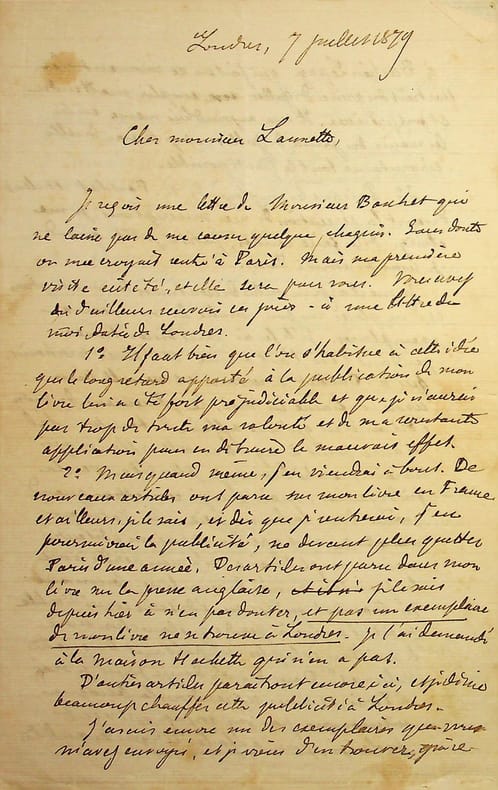 Londres, 7 juillet 1879
Cher monsieur Launette,
Je reçois une lettre de Monsieur Boschet qui
ne laisse pas de me causer quelque chagrin. Sans doute
on me croyait rentré à Paris. Mais ma première
visite eût été, et elle sera pour vous. Vous avez
dû d'ailleurs recevoir ces jours-ci une lettre de
moi, datée de Londres.
1º Il faut bien que l'on s'habitue à cette idée
que le long retard apporté à la publication de mon
livre lui a été fort préjudiciable et que je n'aurai
pas trop de toute ma volonté et de ma constante
application pour en détruire le mauvais effet.
2º Mais quand même, j'en viendrai à bout. De
nouveaux articles ont paru sur mon livre en France
et ailleurs, je le sais, et dès que je rentrerai, j'en
poursuivrai la publicité, ne devant plus quitter
Paris d'une année. Des articles ont paru dans mon
livre sur la presse anglaise, je le sais
depuis hier à n'en pas douter, et pas un exemplaire
de mon livre ne se trouve à Londres. Je l'ai demandé
à la maison Hachette qui n'en a pas.
D'autres articles paraîtront encore ici, et je désire
beaucoup chauffer cette publicité à Londres.
J'avais encore un des exemplaires que vous
m'avez envoyés, et je viens d'en trouver, grâce